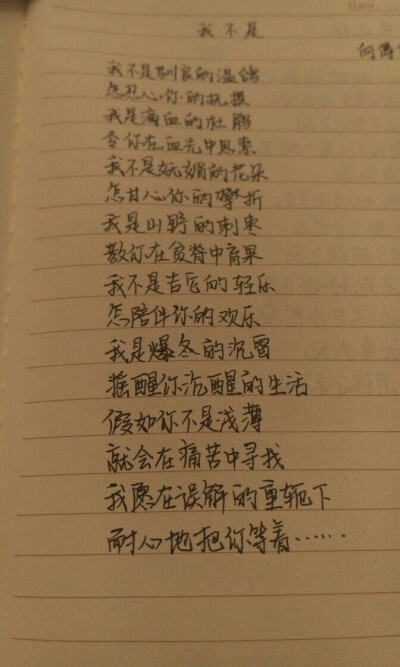 我不是
向傅
我不是驯良的温鸽
怎忍心你的抚摸
我是滴血的杜鹃
令你在血光中思索
我不是妩媚的花朵
怎甘心你的攀折
我是山野的刺枣
教你在贫脊中育果
我不是吉它的轻乐
怎陪伴你的欢乐
我是爆冬的沉雷
摇醒你沉醒的生活
假如你不是浅薄
就会在痛苦中寻找
我愿在误解的重轭下
耐心地把你等着……